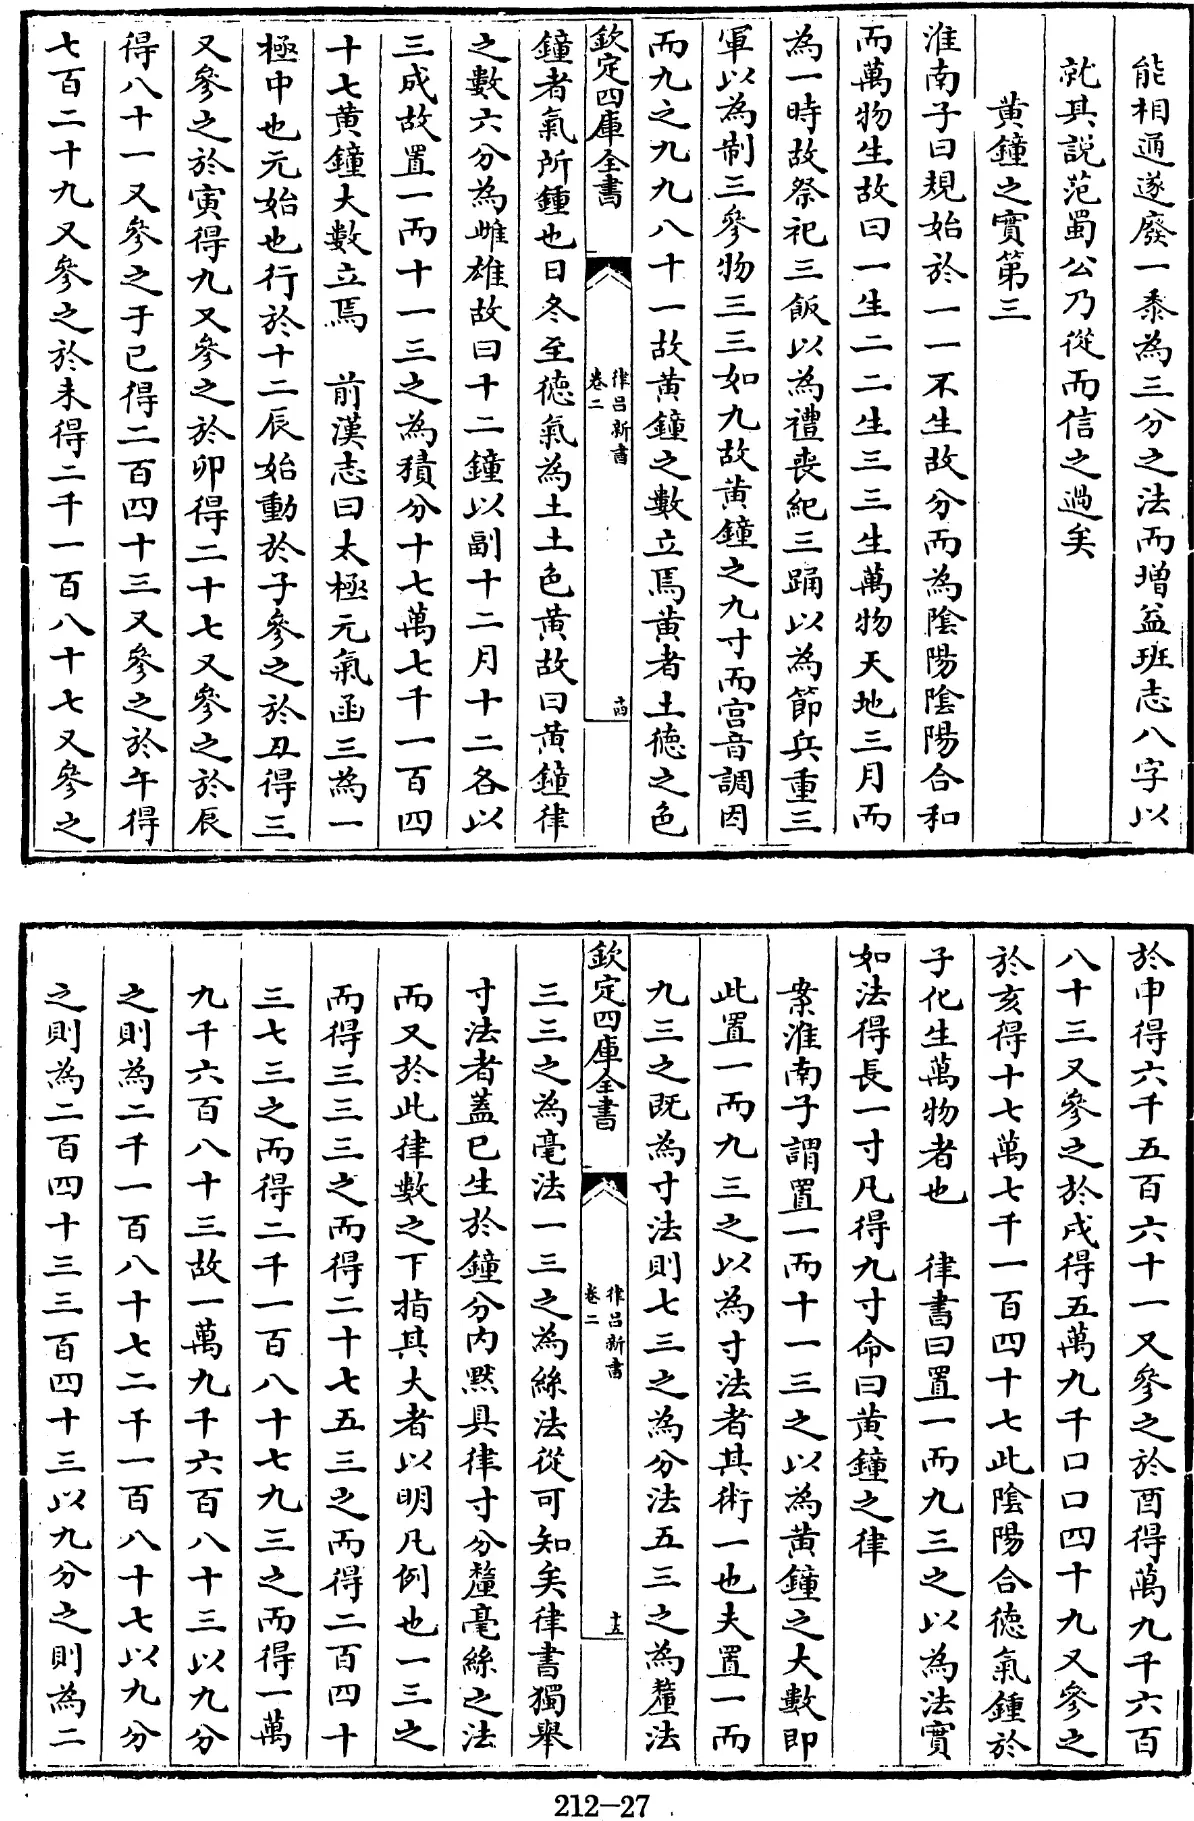 能相通遂廢一黍為三分之法而增益班志八字以
就其説范蜀公乃從而信之過矣
黄鐘之實第三
淮南子曰規始於一一不生故分而為陰陽陰陽合和
而萬物生故曰一生二二生三三生萬物天地三月而
為一時故祭祀三飯以為禮喪紀三踊以為節兵重三
軍以為制三參物三三如九故黄鐘之九寸而宫音調因
而九之九九八十一故黄鐘之數立焉黄者土德之色
欽定四庫全書
律吕新書
卷二
十四
鐘者氣所鍾也日冬至德氣為土土色黄故曰黄鐘律
之數六分為雌雄故曰十二鐘以副十二月十二各以
三成故置一而十一三之為積分十七萬七千一百四
十七黄鐘大數立焉　前漢志曰太極元氣函三為一
極中也元始也行於十二辰始動於子參之於丑得三
又參之於寅得九又參之於卯得二十七又參之於辰
得八十一又參之于已得二百四十三又參之於午得
七百二十九又參之於未得二千一百八十七又參之
於申得六千五百六十一又參之於酉得萬九千六百
八十三又參之於戍得五萬九千口口四十九又參之
於亥得十七萬七千一百四十七此陰陽合德氣鍾於
子化生萬物者也　律書曰置一而九三之以為法實
如法得長一寸凡得九寸命曰黄鐘之律
案淮南子謂置一而十一三之以為黄鐘之大數即
此置一而九三之以為寸法者其術一也夫置一而
九三之既為寸法則七三之為分法五三之為釐法
欽定四庫全書
律吕新書
卷二
十五
三三之為毫法一三之為絲法從可知矣律書獨舉
寸法者蓋已生於鐘分内黙具律寸分釐毫絲之法
而又於此律數之下指其大者以明凡例也一三之
而得三三三之而得二十七五三之而得二百四十
三七三之而得二千一百八十七九三之而得一萬
九千六百八十三故一萬九千六百八十三以九分
之則為二千一百八十七二千一百八十七以九分
之則為二百四十三二百四十三以九分之則為二
212-27